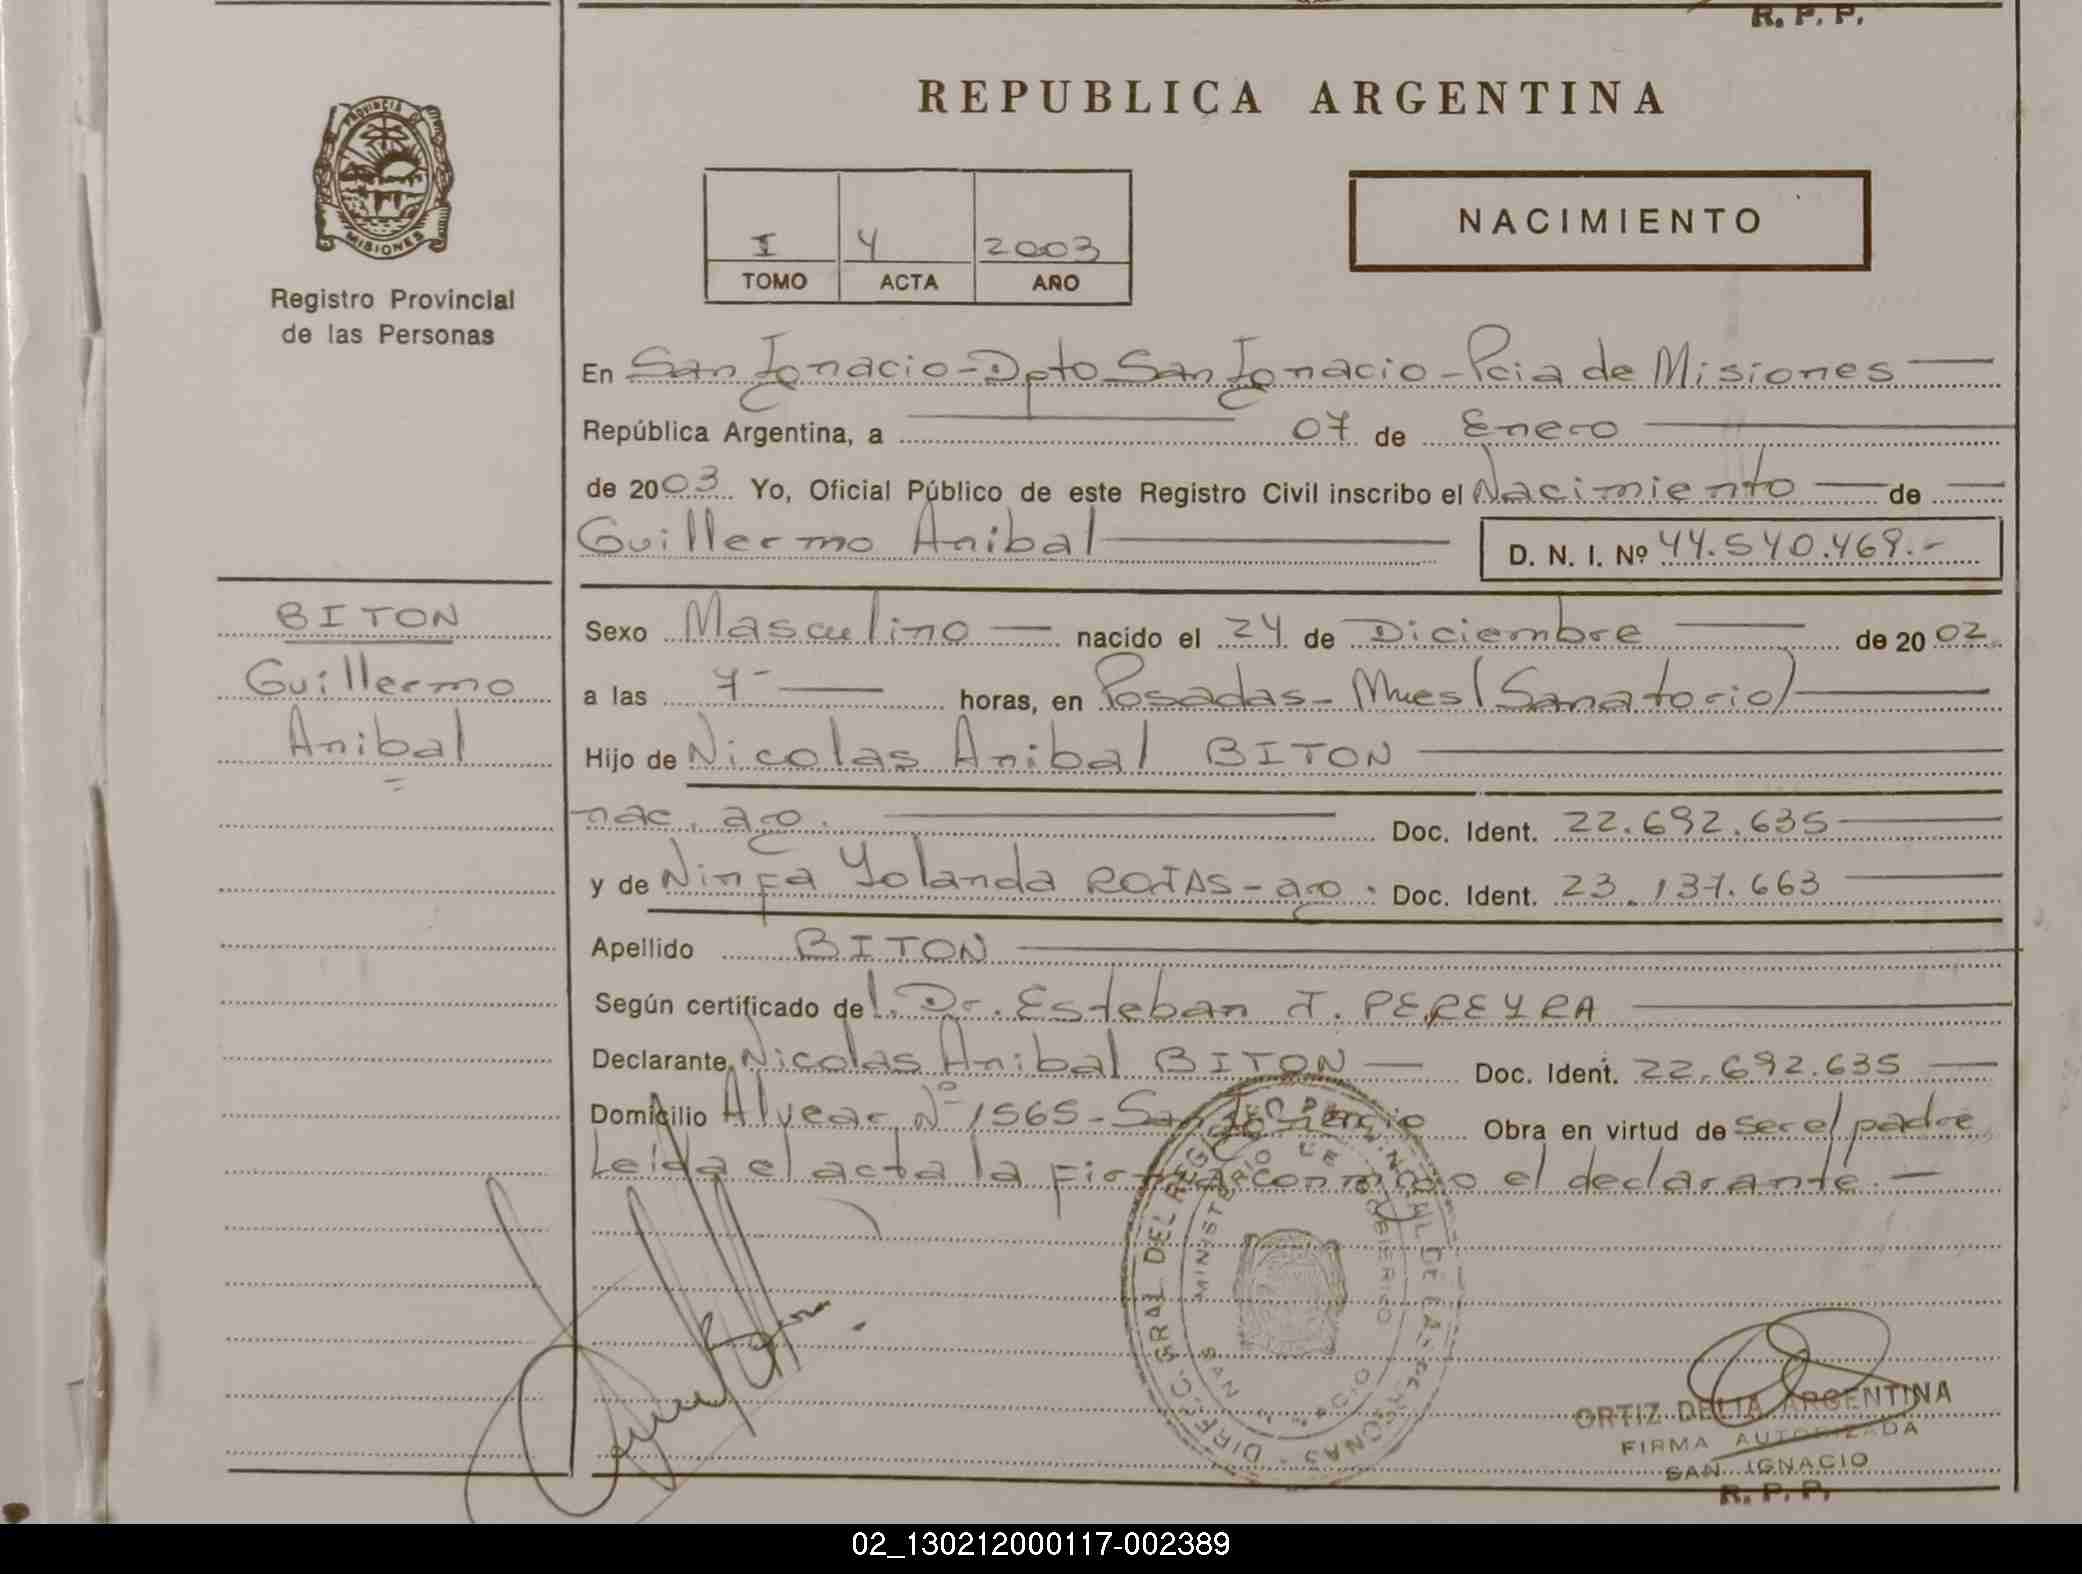 R. P. P.
REPUBLICA ARGENTINA
PROVINCIA DE
MISIONES
Registro Provincial
de las Personas
I 4 2003
TOMO ACTA AÑO
NACIMIENTO
En San Ignacio - Dpto San Ignacio - Pcia de Misiones
República Argentina, a 07 de Enero
de 2003 Yo, Oficial Público de este Registro Civil inscribo el Nacimiento de
Guillermo Anibal D. N. I. Nº 44.540.469.-
BITON
Guillermo
Anibal
Sexo Masculino nacido el 24 de Diciembre de 2002
a las 7- horas, en Posadas - Mnes (Sanatorio)
Hijo de Nicolas Anibal BITON
nac. arg. Doc. Ident. 22.692.635
y de Ninfa Yolanda ROJAS - arg. Doc. Ident. 23.137.663
Apellido BITON
Según certificado del Dr. Esteban J. PEREYRA
Declarante Nicolas Anibal BITON Doc. Ident. 22.692.635
Domicilio Alvear Nº 1565 - San Ignacio Obra en virtud de ser el padre
Leida el acta la firma conmigo el declarante.-
DIRECC. GRAL DEL REG. PROVINCIAL DE LAS PERSONAS
MINISTERIO DE GOBIERNO
SAN IGNACIO
ORTIZ DELIA ARGENTINA
FIRMA AUTORIZADA
SAN IGNACIO
R. P. P.
02_130212000117-002389